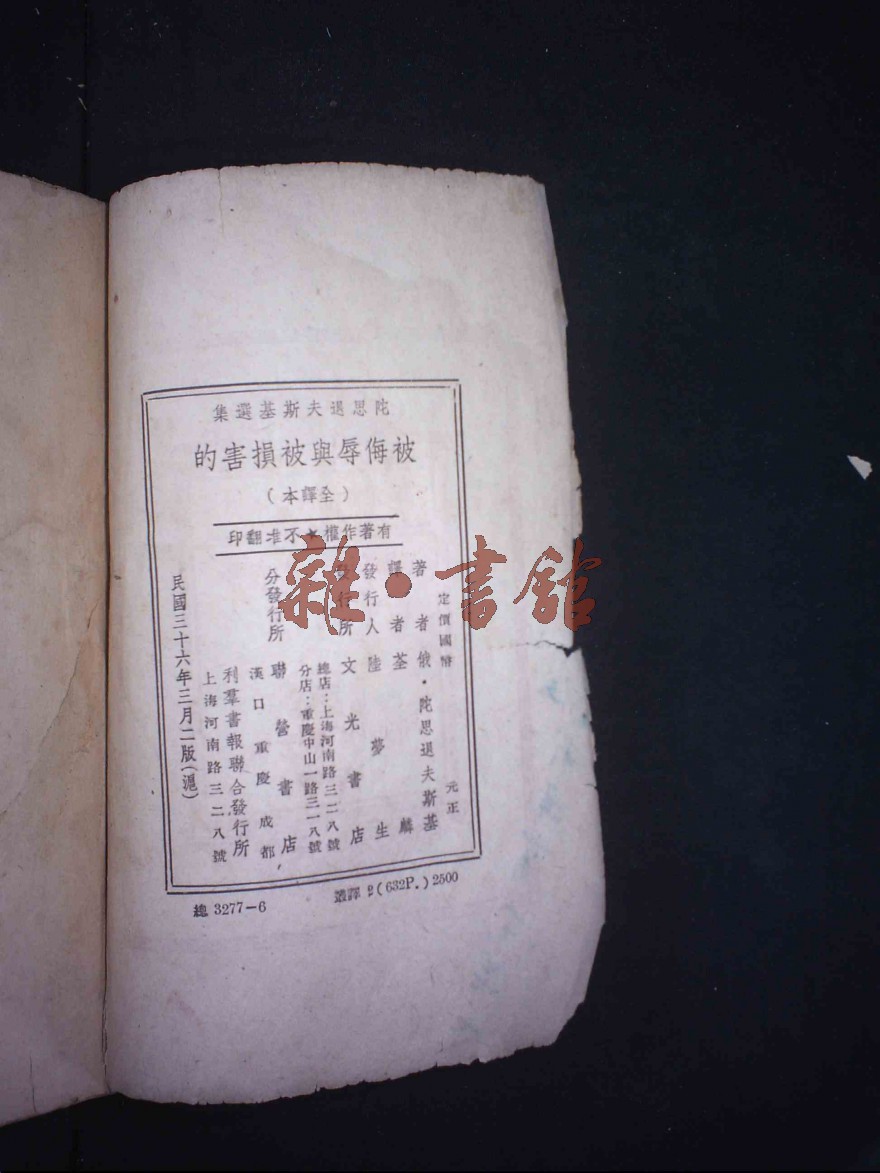 陀思退夫斯基選集
被侮辱與被損害的
（全譯本）
有著作權★不准翻印
定價國幣 元正
著者 俄·陀思退夫斯基
譯者 荃麟
發行人 陸夢生
發行所 文光書店
總店：上海河南路三二八號
分店：重慶中山一路三一八號
分發行所 聯營書店
漢口 重慶 成都
利羣書報聯合發行所
上海河南路三二八號
民國三十六年三月二版（滬）
總 3277-6
叢譯 2 (632P.) 2500
雜·書館